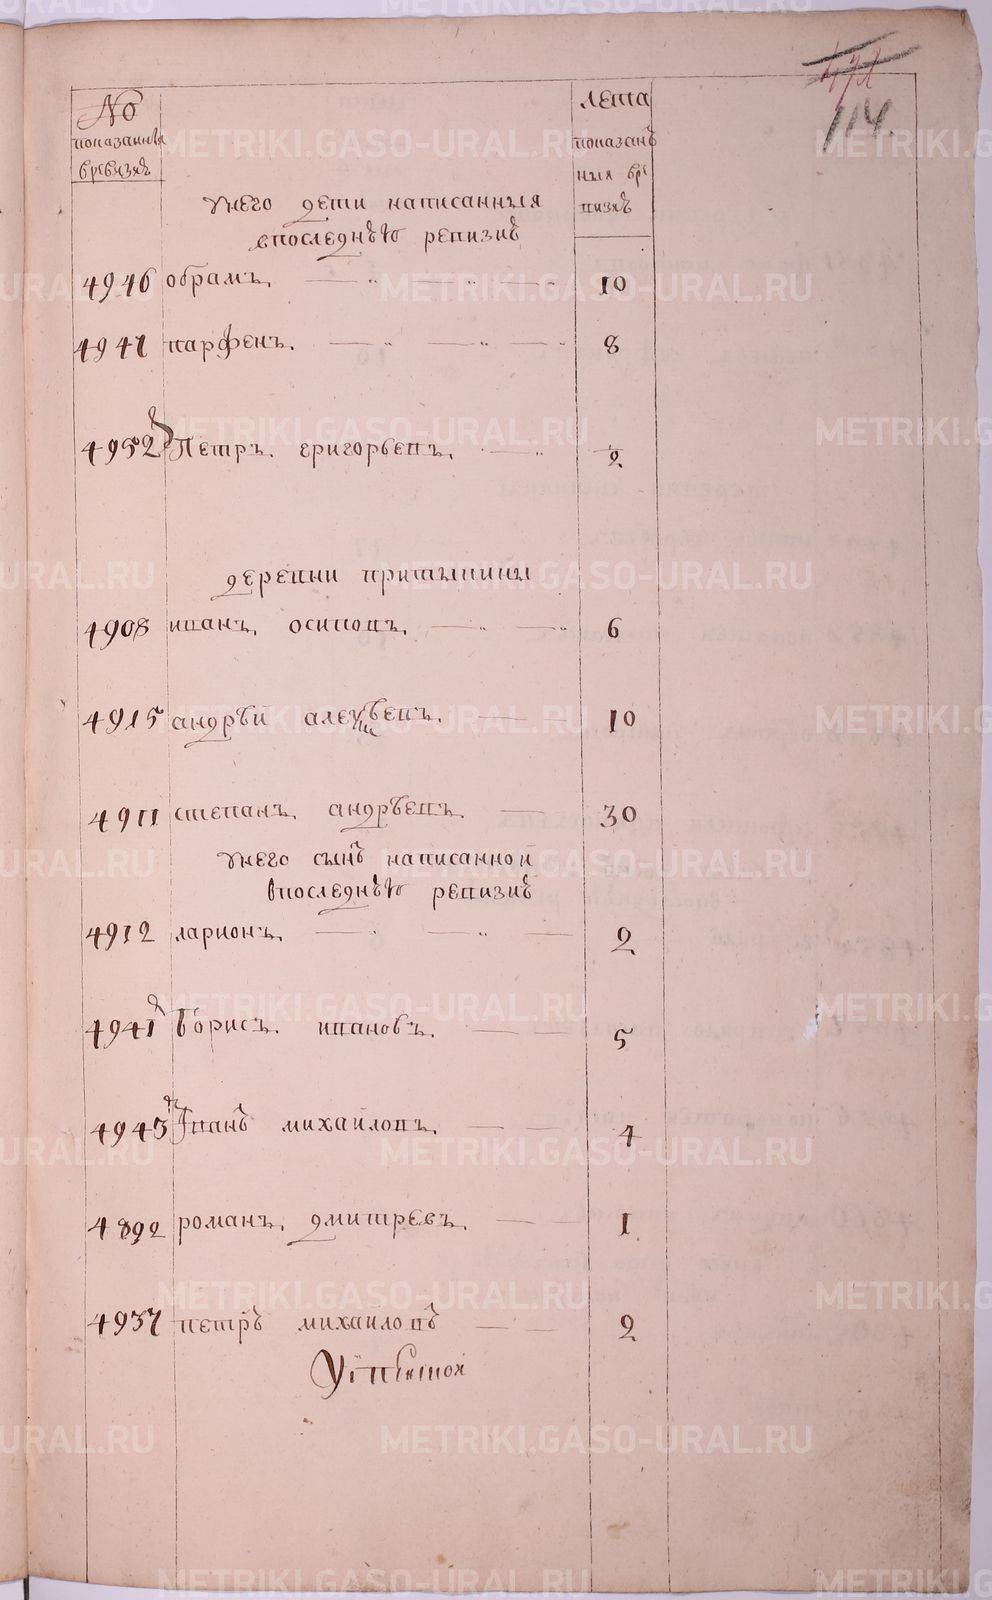 114.
№
показанныя
вревизиѣ
лета
показан
ныя вре
визиѣ
унего дети написанныя
впоследнѣю ревизиѣ
4946 обрамъ. 10
4947 парфенъ. 8
4952 Петръ. григорьевъ. 2
деревни притыкины
4908 иванъ. осиповъ. 6
4915 андрѣй 10
4911 степанъ андрѣевъ. 30
унего сынъ написанной
впоследнѣю ревизиѣ
4912 ларионъ. 2
4941 Борисъ. ивановъ. 5
4943 Iванъ михаиловъ. 4
4892 романъ. дмитревъ. 1
4937 петръ михаиловъ 2
METRIKI.GASO-URAL.RU